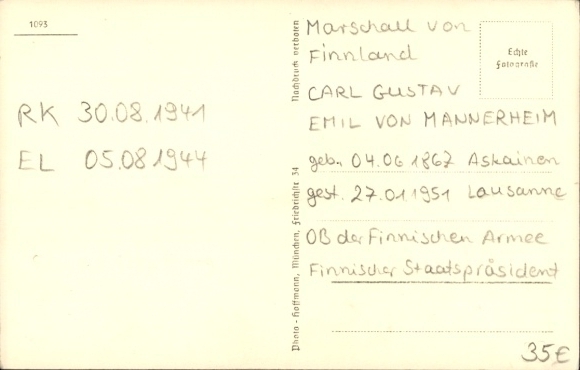 1093
RK 30.08.1941
EL 05.08 1944
Nachdruck verboten
Photo-Hoffmann, München, Friedrichstr. 34
Marschall von
Finnland
CARL GUSTAV
EMIL VON MANNERHEIM
geb. 04.06 1867 Askainen
gest. 27.01 1951 Lausanne
OB der Finnischen Armee
Finnischer Staatspräsident
Echte
Fotografie
35€